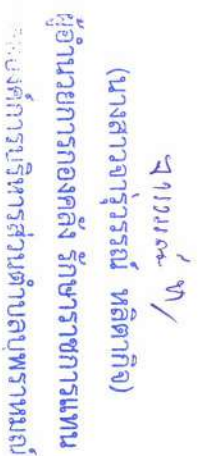 (นางสาวจารุวรรณ์ หลิตากิจ)
ผู้อำนวยการกองคลัง รักษาราชการแทน
องค์การบริหารส่วนตำบลบุพราหมณ์